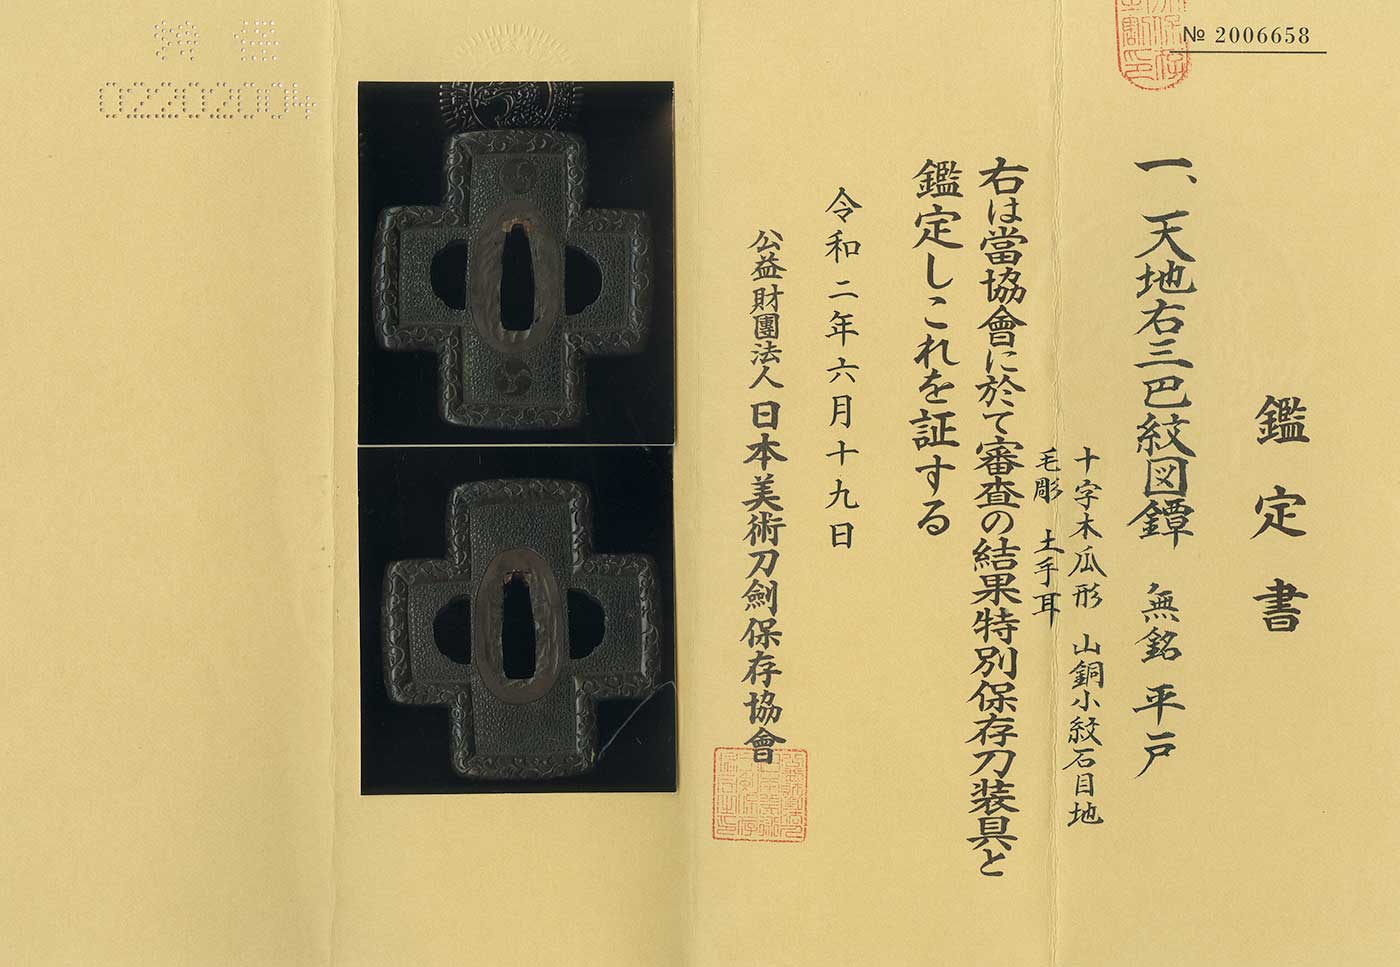 № 2006658
鑑定書
一、天地右三巴紋図鐔 無銘 平戸
十字木瓜形 山銅小紋石目地
毛彫 土手耳
右は當協會に於て審査の結果特別保存刀装具と
鑑定しこれを証する
令和二年六月十九日
公益財團法人日本美術刀劍保存協會
特保
02202004